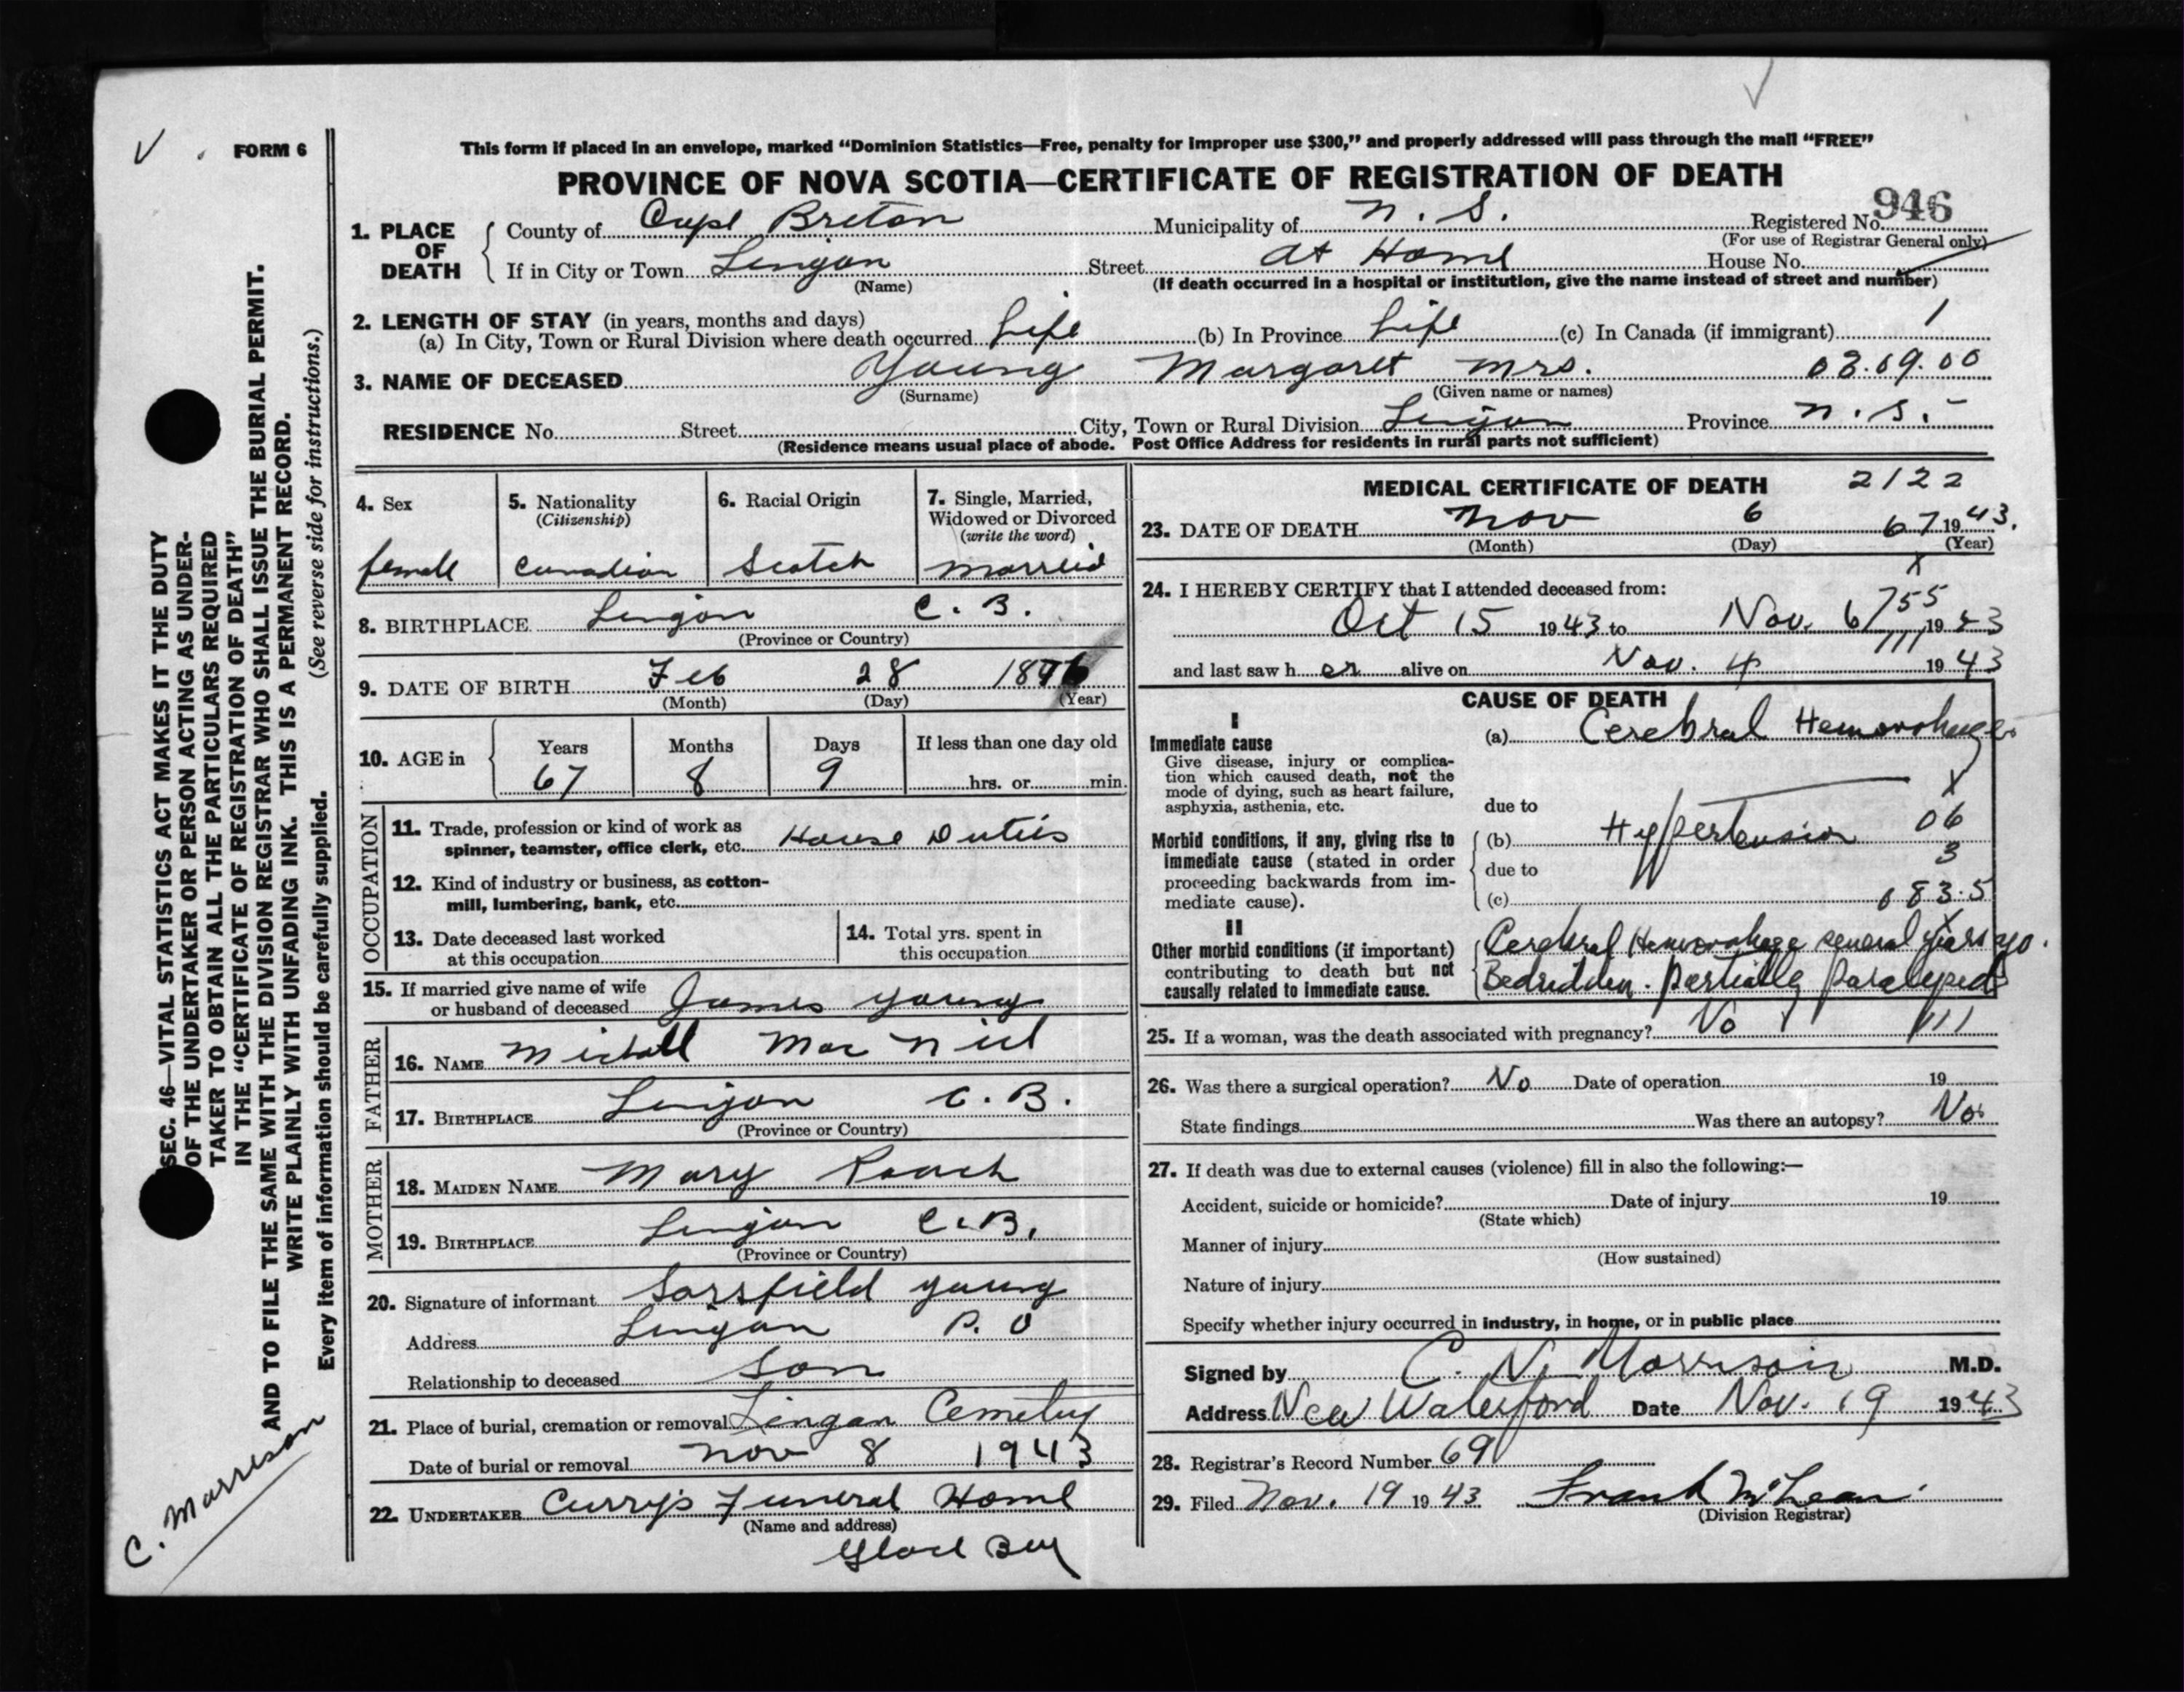 FORM 6
This form if placed in an envelope, marked “Dominion Statistics—Free, penalty for improper use $300,” and properly addressed will pass through the mail “FREE”
PROVINCE OF NOVA SCOTIA—CERTIFICATE OF REGISTRATION OF DEATH
946
1. PLACE OF DEATH
County of Cape Breton Municipality of N. S. Registered No.
(For use of Registrar General only)
If in City or Town Lingan Street At Home House No.
(Name)
(If death occurred in a hospital or institution, give the name instead of street and number)
2. LENGTH OF STAY (in years, months and days)
(a) In City, Town or Rural Division where death occurred Life (b) In Province Life (c) In Canada (if immigrant) 1
3. NAME OF DECEASED Young Margaret Mrs. 03.09.00
(Surname) (Given name or names)
RESIDENCE No. Street City, Town or Rural Division Lingan Province N. S.
(Residence means usual place of abode. Post Office Address for residents in rural parts not sufficient)
4. Sex
female
5. Nationality
(Citizenship)
Canadian
6. Racial Origin
Scotch
7. Single, Married,
Widowed or Divorced
(write the word)
Married
8. BIRTHPLACE Lingan C. B.
(Province or Country)
9. DATE OF BIRTH Feb 28 1876
(Month) (Day) (Year)
10. AGE in
Years Months Days If less than one day old
67 8 9 hrs. or min.
OCCUPATION
11. Trade, profession or kind of work as
spinner, teamster, office clerk, etc. House Duties
12. Kind of industry or business, as cotton-
mill, lumbering, bank, etc.
13. Date deceased last worked
at this occupation
14. Total yrs. spent in
this occupation
15. If married give name of wife
or husband of deceased James Young
FATHER
16. NAME Michael Mac Niel
17. BIRTHPLACE Lingan C. B.
(Province or Country)
MOTHER
18. MAIDEN NAME Mary Roach
19. BIRTHPLACE Lingan C.B.
(Province or Country)
20. Signature of informant Sarsfield Young
Address Lingan P. O
Relationship to deceased Son
21. Place of burial, cremation or removal Lingan Cemetery
Date of burial or removal Nov 8 1943
22. UNDERTAKER Curry's Funeral Home
(Name and address)
Glace Bay
MEDICAL CERTIFICATE OF DEATH 2122
23. DATE OF DEATH Nov 6 67 1943.
(Month) (Day) (Year)
X
24. I HEREBY CERTIFY that I attended deceased from:
755
Oct 15 1943 to Nov. 6 1943
111
and last saw her alive on Nov. 4 1943
CAUSE OF DEATH
I
Immediate cause
Give disease, injury or complica-
tion which caused death, not the
mode of dying, such as heart failure,
asphyxia, asthenia, etc.
(a) Cerebral Hemorrhage
X
due to
Morbid conditions, if any, giving rise to
immediate cause (stated in order
proceeding backwards from im-
mediate cause).
(b) Hypertension 06
3
due to
(c) 083.5
X
II
Other morbid conditions (if important)
contributing to death but not
causally related to immediate cause.
Cerebral Hemorrhage several years ago.
Bedridden. partially paralyzed
25. If a woman, was the death associated with pregnancy? No 111
26. Was there a surgical operation? No Date of operation 19
State findings Was there an autopsy? No
27. If death was due to external causes (violence) fill in also the following:—
Accident, suicide or homicide? Date of injury 19
(State which)
Manner of injury
(How sustained)
Nature of injury
Specify whether injury occurred in industry, in home, or in public place
Signed by C. N. Morrison M.D.
Address New Waterford Date Nov. 19 1943
28. Registrar's Record Number 69
29. Filed Nov. 19 1943 Frank McLean
(Division Registrar)
SEC. 46—VITAL STATISTICS ACT MAKES IT THE DUTY
OF THE UNDERTAKER OR PERSON ACTING AS UNDER-
TAKER TO OBTAIN ALL THE PARTICULARS REQUIRED
IN THE “CERTIFICATE OF REGISTRATION OF DEATH”
AND TO FILE THE SAME WITH THE DIVISION REGISTRAR WHO SHALL ISSUE THE BURIAL PERMIT.
WRITE PLAINLY WITH UNFADING INK. THIS IS A PERMANENT RECORD.
Every item of information should be carefully supplied. (See reverse side for instructions.)
C. Morrison